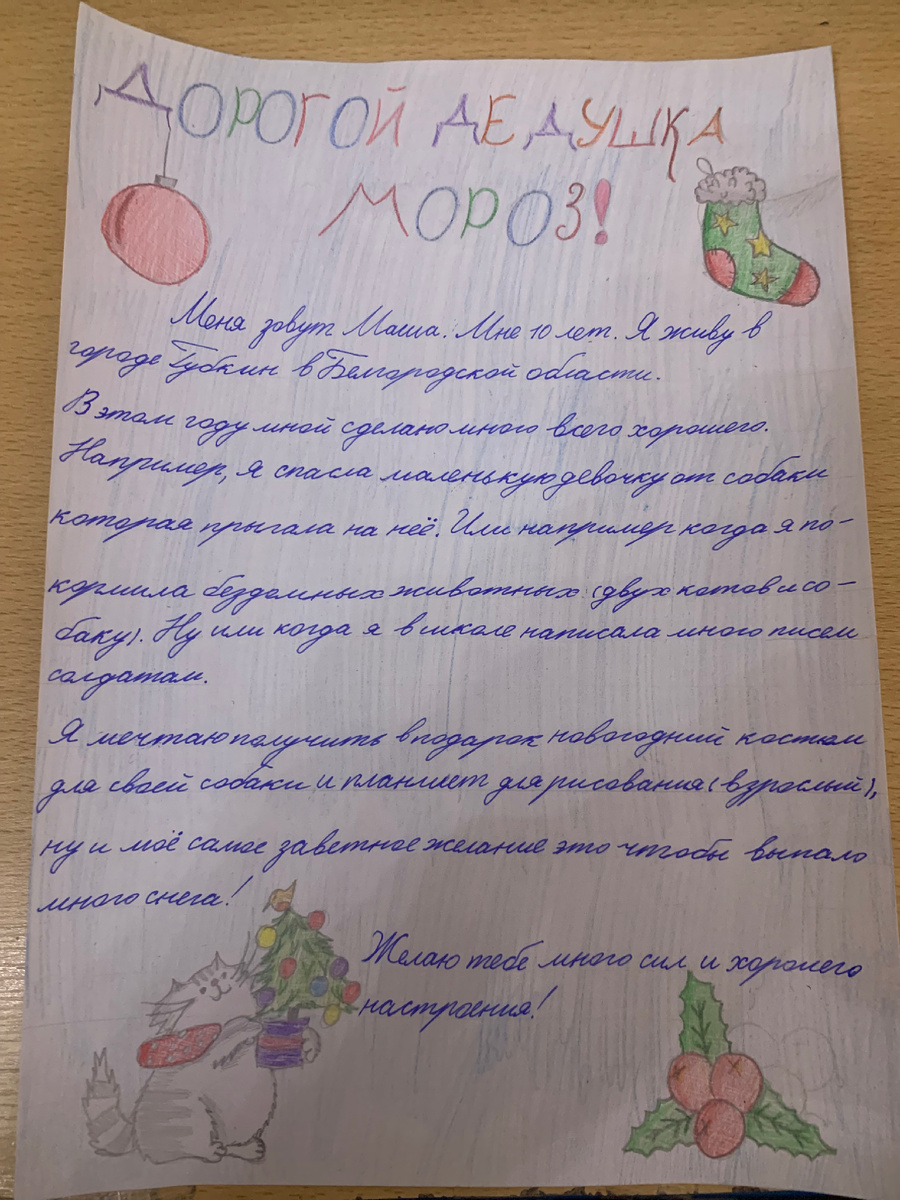 ДОРОГОЙ ДЕДУШКА
МОРОЗ!
Меня зовут Маша. Мне 10 лет. Я живу в
городе Губкин в Белгородской области.
В этом году мной сделано много всего хорошего.
Например, я спасла маленькую девочку от собаки
которая прыгала на неё. Или например когда я по-
кормила бездомных животных (двух котов и со-
баку). Ну или когда я в школе написала много писем
солдатам.
Я мечтаю получить в подарок новогодний костюм
для своей собаки и планшет для рисования (взрослый),
ну и моё самое заветное желание это чтобы выпало
много снега!
Желаю тебе много сил и хорошего
настроения!